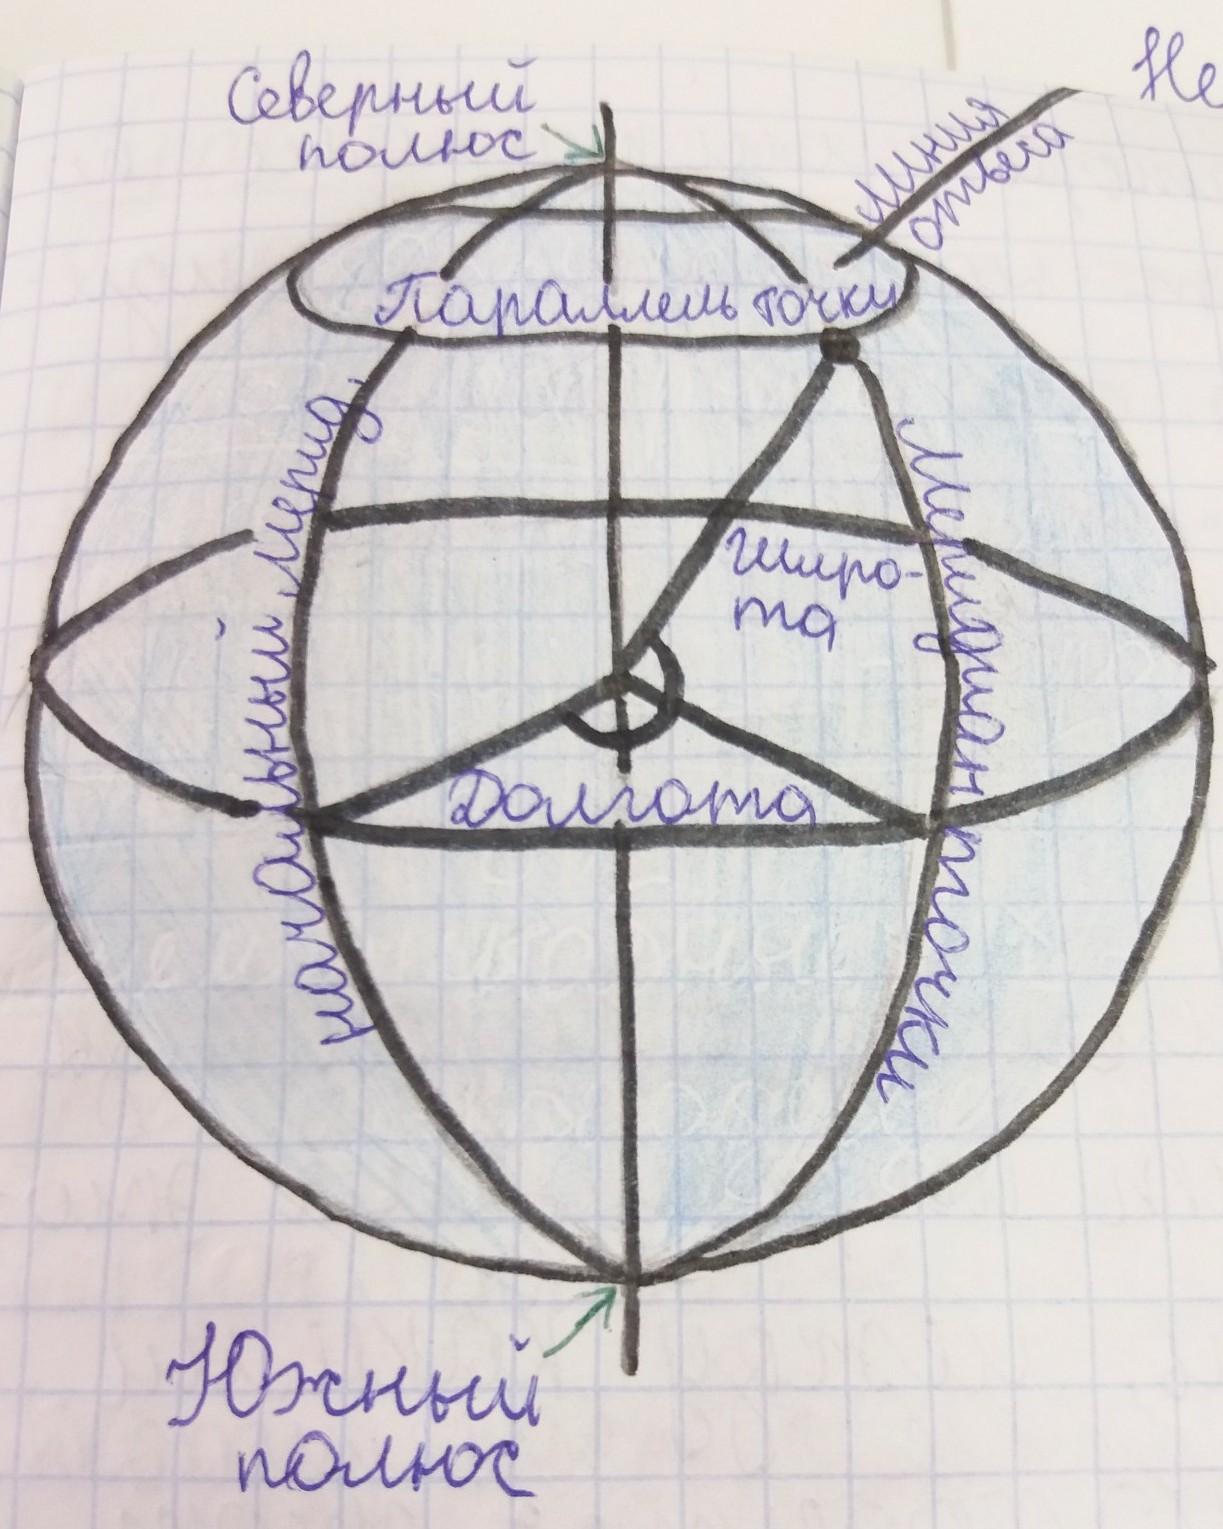 Северный
полюс
Не
линия
отвеса
Параллель точки
начальный мерид.
Меридиан точки
Широ-
та
Долгота
Южный
полюс